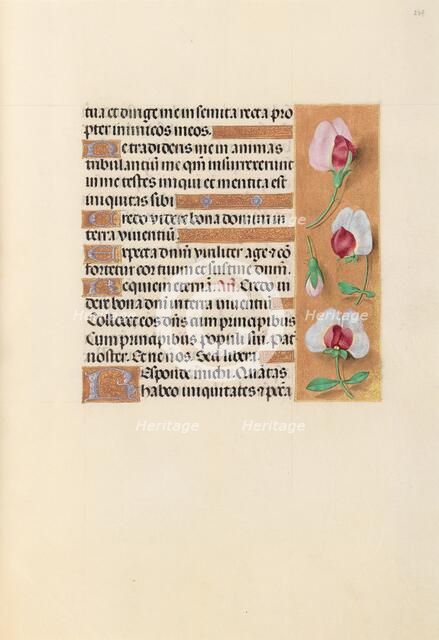 tua et dirige me in semita recta pro
pter inimicos meos.
Ne tradideris me in animas
tribulantiū me qm̄ insurrexerunt
in me testes iniqui et mentita est
iniquitas sibi
Credo videre bona domini in
terra viventiū.
Expecta dn̄m viriliter age et cō
fortetur cor tuum et sustine dn̄m.
Requiem eternā. an̄. Credo vi
dere bona dn̄i in terra viventiū
Collocet eos dn̄s cum principibus
Cum principibus populi sui. Pat
noster. Et ne nos. Sed libera
Responde michi. Quātas
habeo iniquitates et pecca
Heritage
Heritage
Heritage
Heritage
Heritage
Heritage